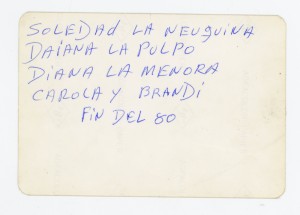 SOLEDAd LA NEUQUINA
DAiANA LA PULPO
DiANA LA MENORA
CAROLA Y BRANDi
FiN DEL 80